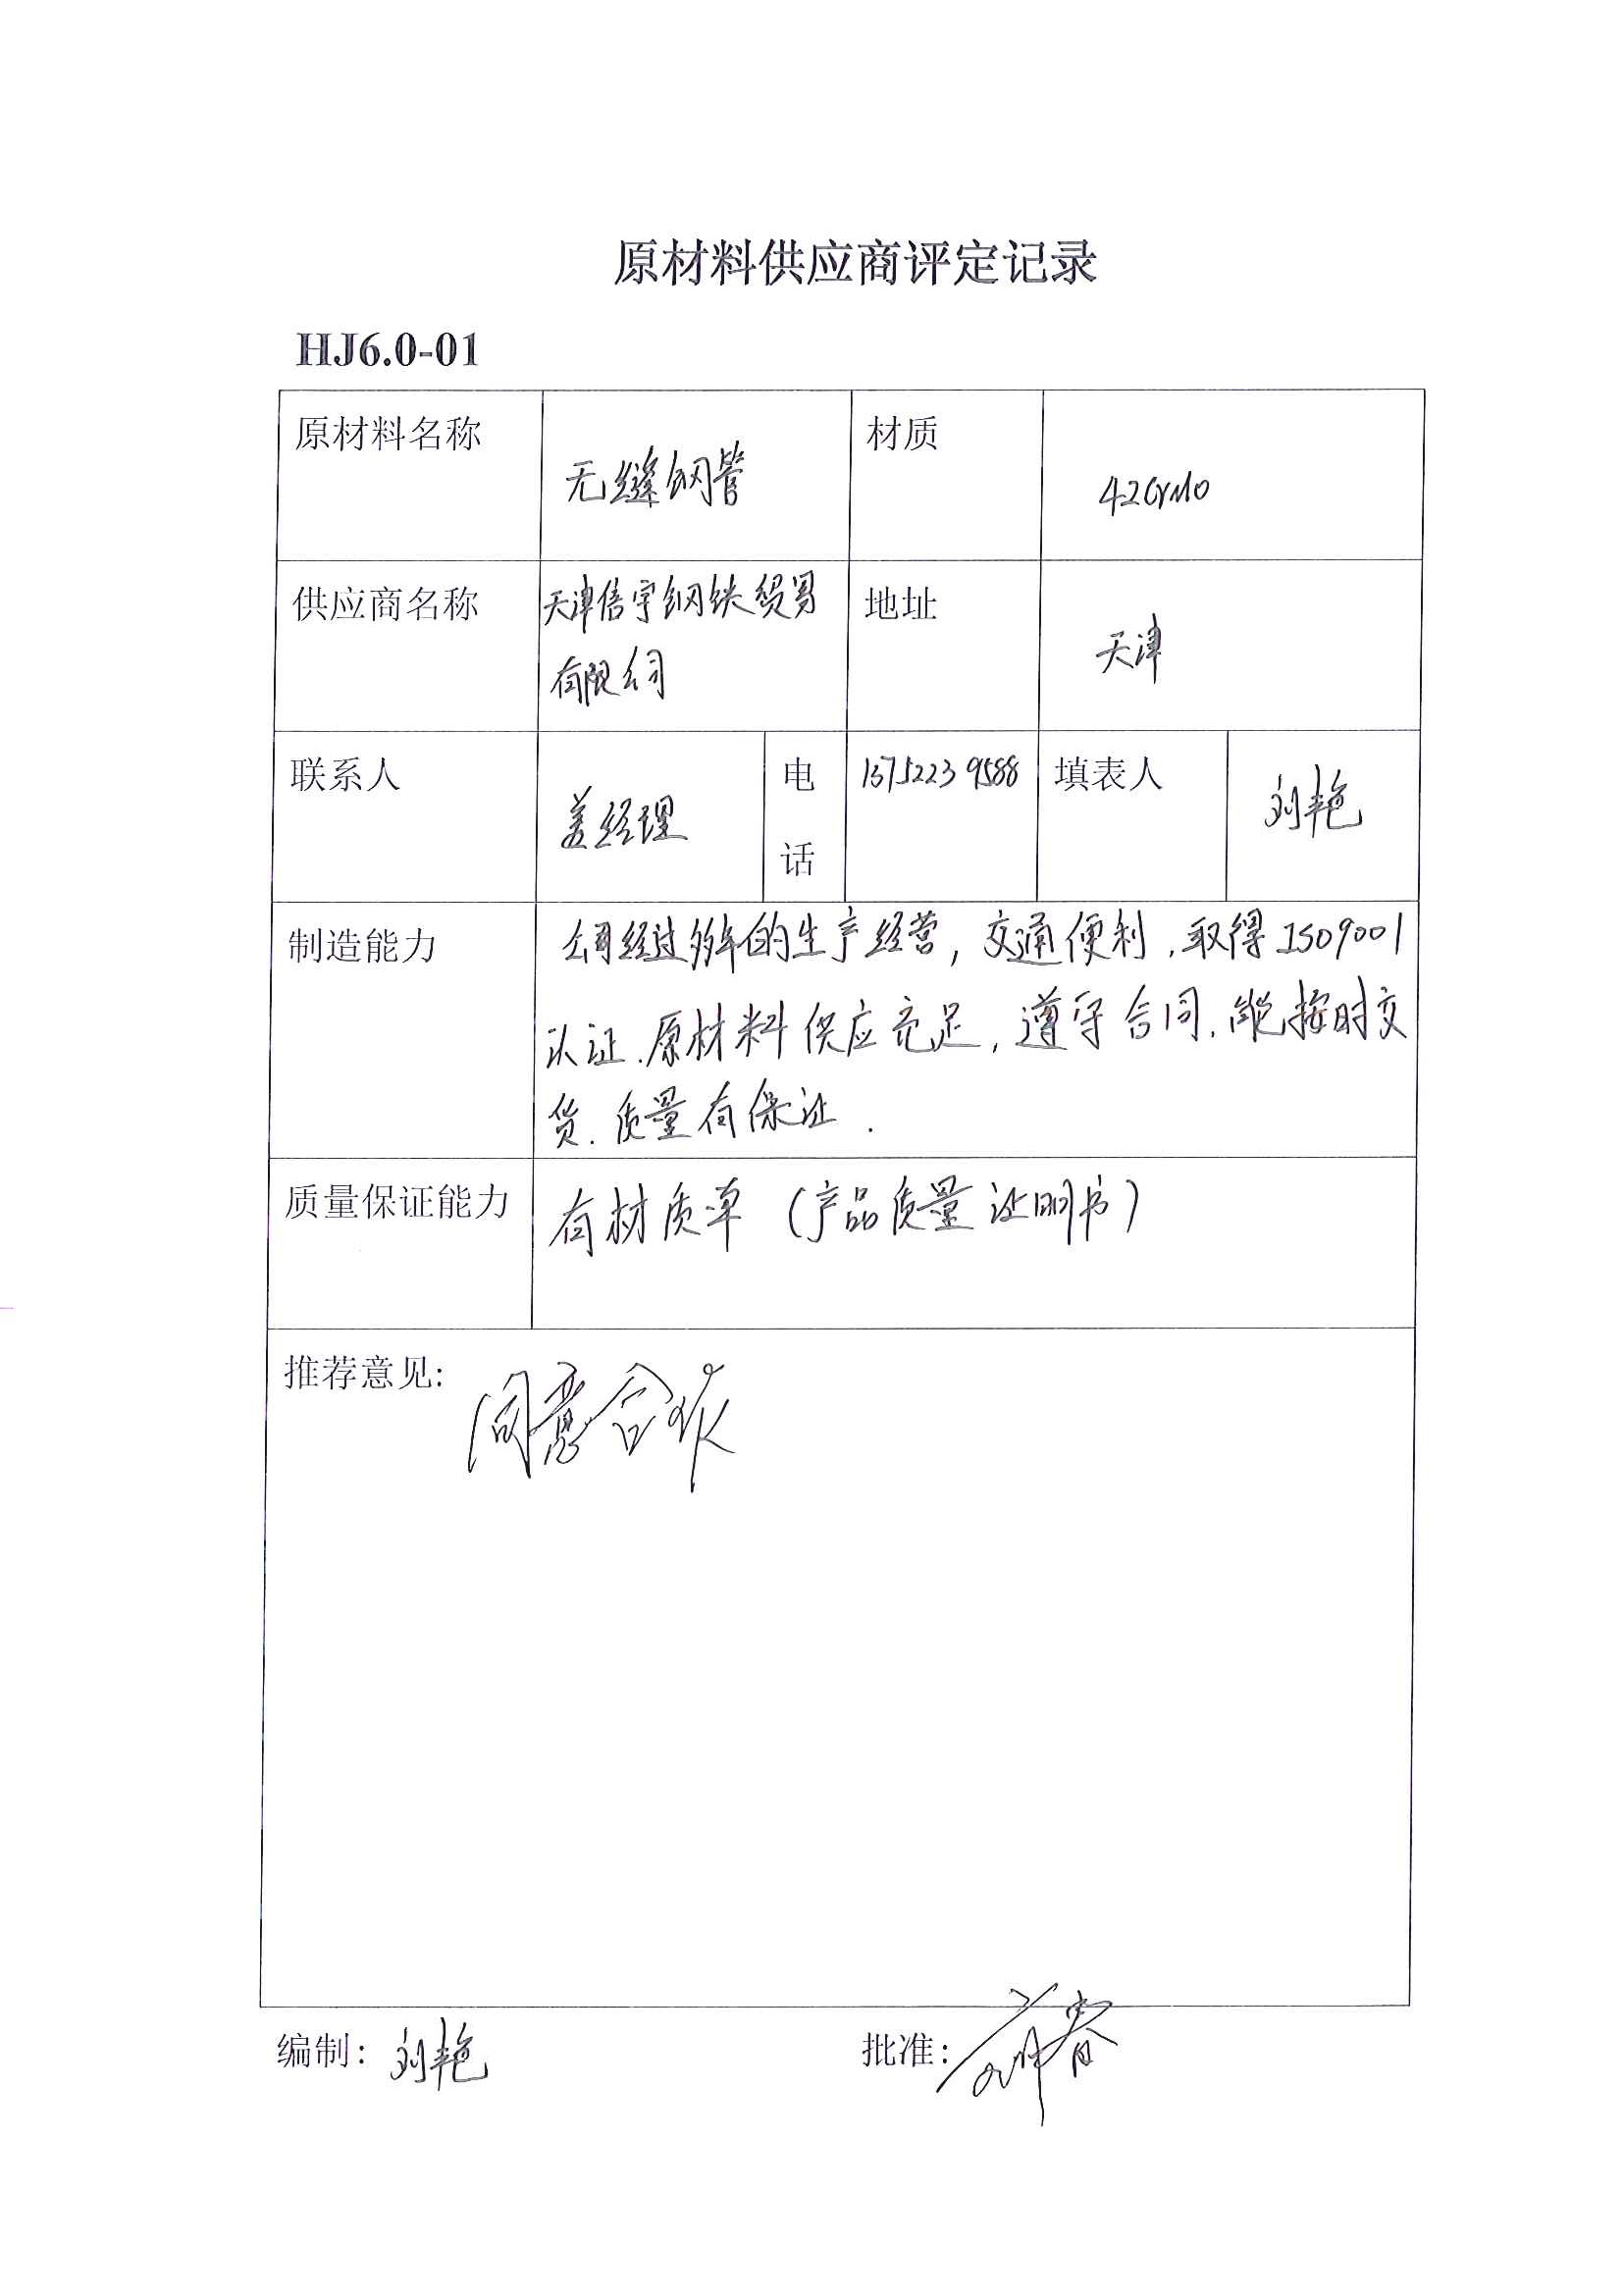 原材料供应商评定记录
HJ6.0-01
原材料名称 无缝钢管 材质 42CrMo
供应商名称 天津信宇钢铁贸易 地址 天津
有限公司
联系人 姜经理 电 13752239588 填表人 刘艳
话
制造能力 公司经过多年的生产经营，交通便利，取得ISO9001
认证.原材料供应充足，遵守合同，能按时交
货.质量有保证.
质量保证能力 有材质单（产品质量证明书）
推荐意见: 同意合作
编制: 刘艳 批准: